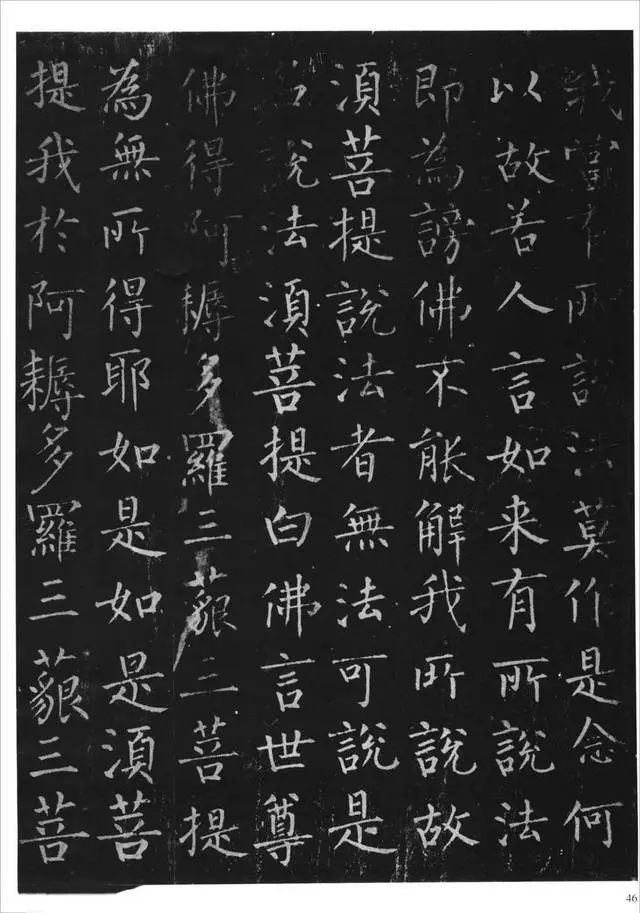 我當有所說法莫作是念何
以故若人言如来有所說法
即為謗佛不能解我所說故
須菩提說法者無法可說是
名說法須菩提白佛言世尊
佛得阿耨多羅三藐三菩提
為無所得耶如是如是須菩
提我於阿耨多羅三藐三菩
46